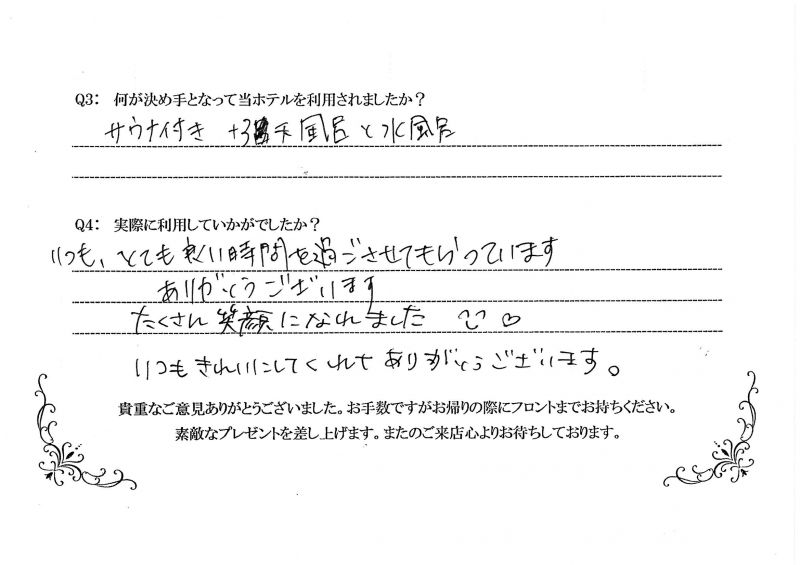 Q3: 何が決め手となって当ホテルを利用されましたか？
サウナ付き 風呂と水風呂
Q4: 実際に利用していかがでしたか？
いつも、とても良い時間を過ごさせてもらっています
ありがとうございます
たくさん笑顔になれました
いつもきれいにしてくれてありがとうございます。
貴重なご意見ありがとうございました。お手数ですがお帰りの際にフロントまでお持ちください。
素敵なプレゼントを差し上げます。またのご来店心よりお待ちしております。